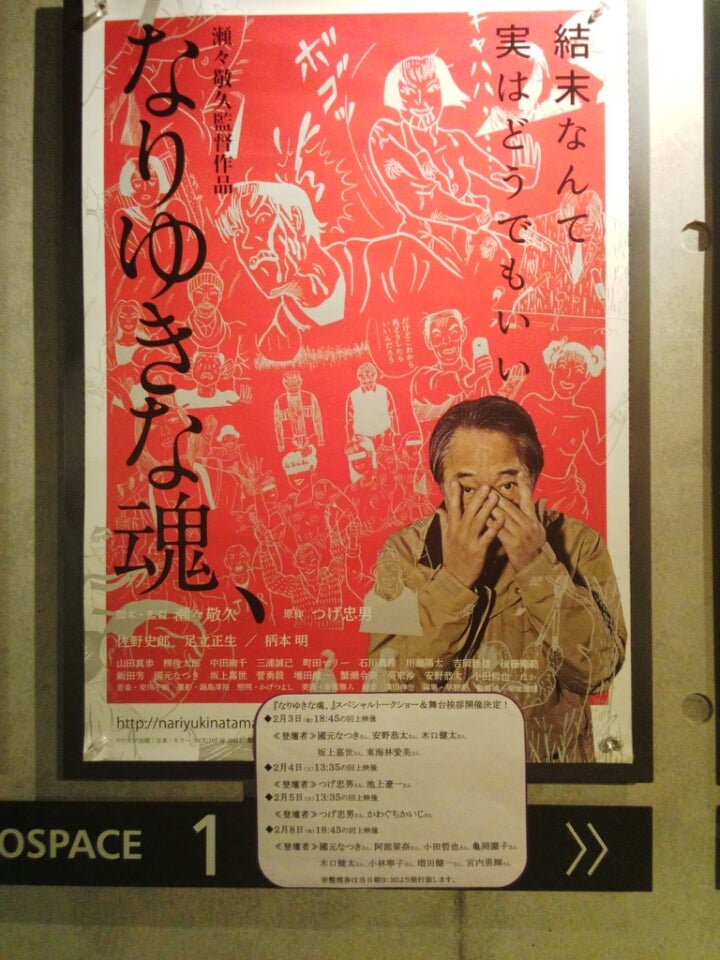 結末なんて
実はどうでもいい
キャハハハ
ボゴッ
瀬々敬久監督作品
なりゆきな魂、
だけどこれから
先どうしたら
いいんだろう
脚本・監督 瀬々敬久 原作 つげ忠男
佐野史郎 足立正生／柄本明
山田真歩 柳俊太郎 中田絢千 三浦誠己 町田マリー 石川真希 川瀬陽太 吉岡睦雄 後藤剛範
飯田芳 國元なつき 坂上嘉世 管勇毅 増田健一 蟹瀬令奈 葵來沙 安野恭太 小田哲也 ほか
http://nariyukinatama
『なりゆきな魂、』スペシャルトークショー＆舞台挨拶開催決定！
◆2月3日(金)18:45の回上映後
≪登壇者≫國元なつきさん、安野恭太さん、木口健太さん、
坂上嘉世さん、東海林愛美さん、
◆2月4日(土)13:35の回上映後
≪登壇者≫つげ忠男さん、池上遼一さん
◆2月5日(日)13:35の回上映後
≪登壇者≫つげ忠男さん、かわぐちかいじさん
◆2月8日(水)18:45の回上映後
≪登壇者≫國元なつきさん、阿部栞奈さん、小田哲也さん、亀岡園子さん、
木口健太さん、小林寧子さん、増田健一さん、宮内勇輝さん
※整理券は当日朝9:30より発行致します。
OSPACE 1